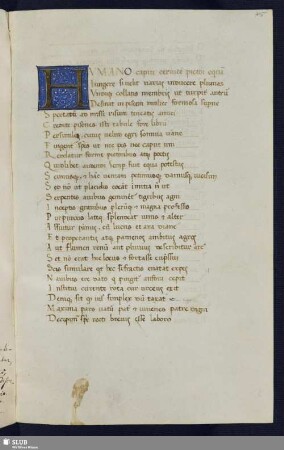 HVMANO capiti ceruicem pictor equinam
Iungere si uelit uarias inducere plumas
Vndiq; collatis membris ut turpiter atrum
Desinat in piscem mulier formosa superne
Spectatum admissi risum teneatis amici
Credite pisones isti tabule fore librum
Persimilem cuius uelut egri somnia uane
Fingentur species ut nec pes nec caput uni
Reddatur forme pictoribus atq; poetis
Quidlibet audendi semper fuit equa potestas
Scimus & hanc ueniam petimusq; damusq; uicissim
Sed non ut placidis coeant immitia non ut
Serpentes auibus geminentur tigribus agni
Inceptis grauibus plerunq; & magna professis
Purpureus late qui splendeat unus & alter
Assuitur pannus cum lucus et ara diane
Et properantis aque per amenos ambitus agros
Aut flumen renum aut pluuius describitur arcus
Sed nunc non erat his locus & fortasse cupressum
Scis simulare quid hoc si fractis enatat expes
Nauibus ere dato qui pingitur amphora cepit
Institui currente rota cur urceus exit
Deniq; sit quid uis simplex dumtaxat &
Maxima pars uatum pater & iuuenes patre digni
Decipimur specie recti breuis esse laboro
SLUB
Wir führen Wissen.